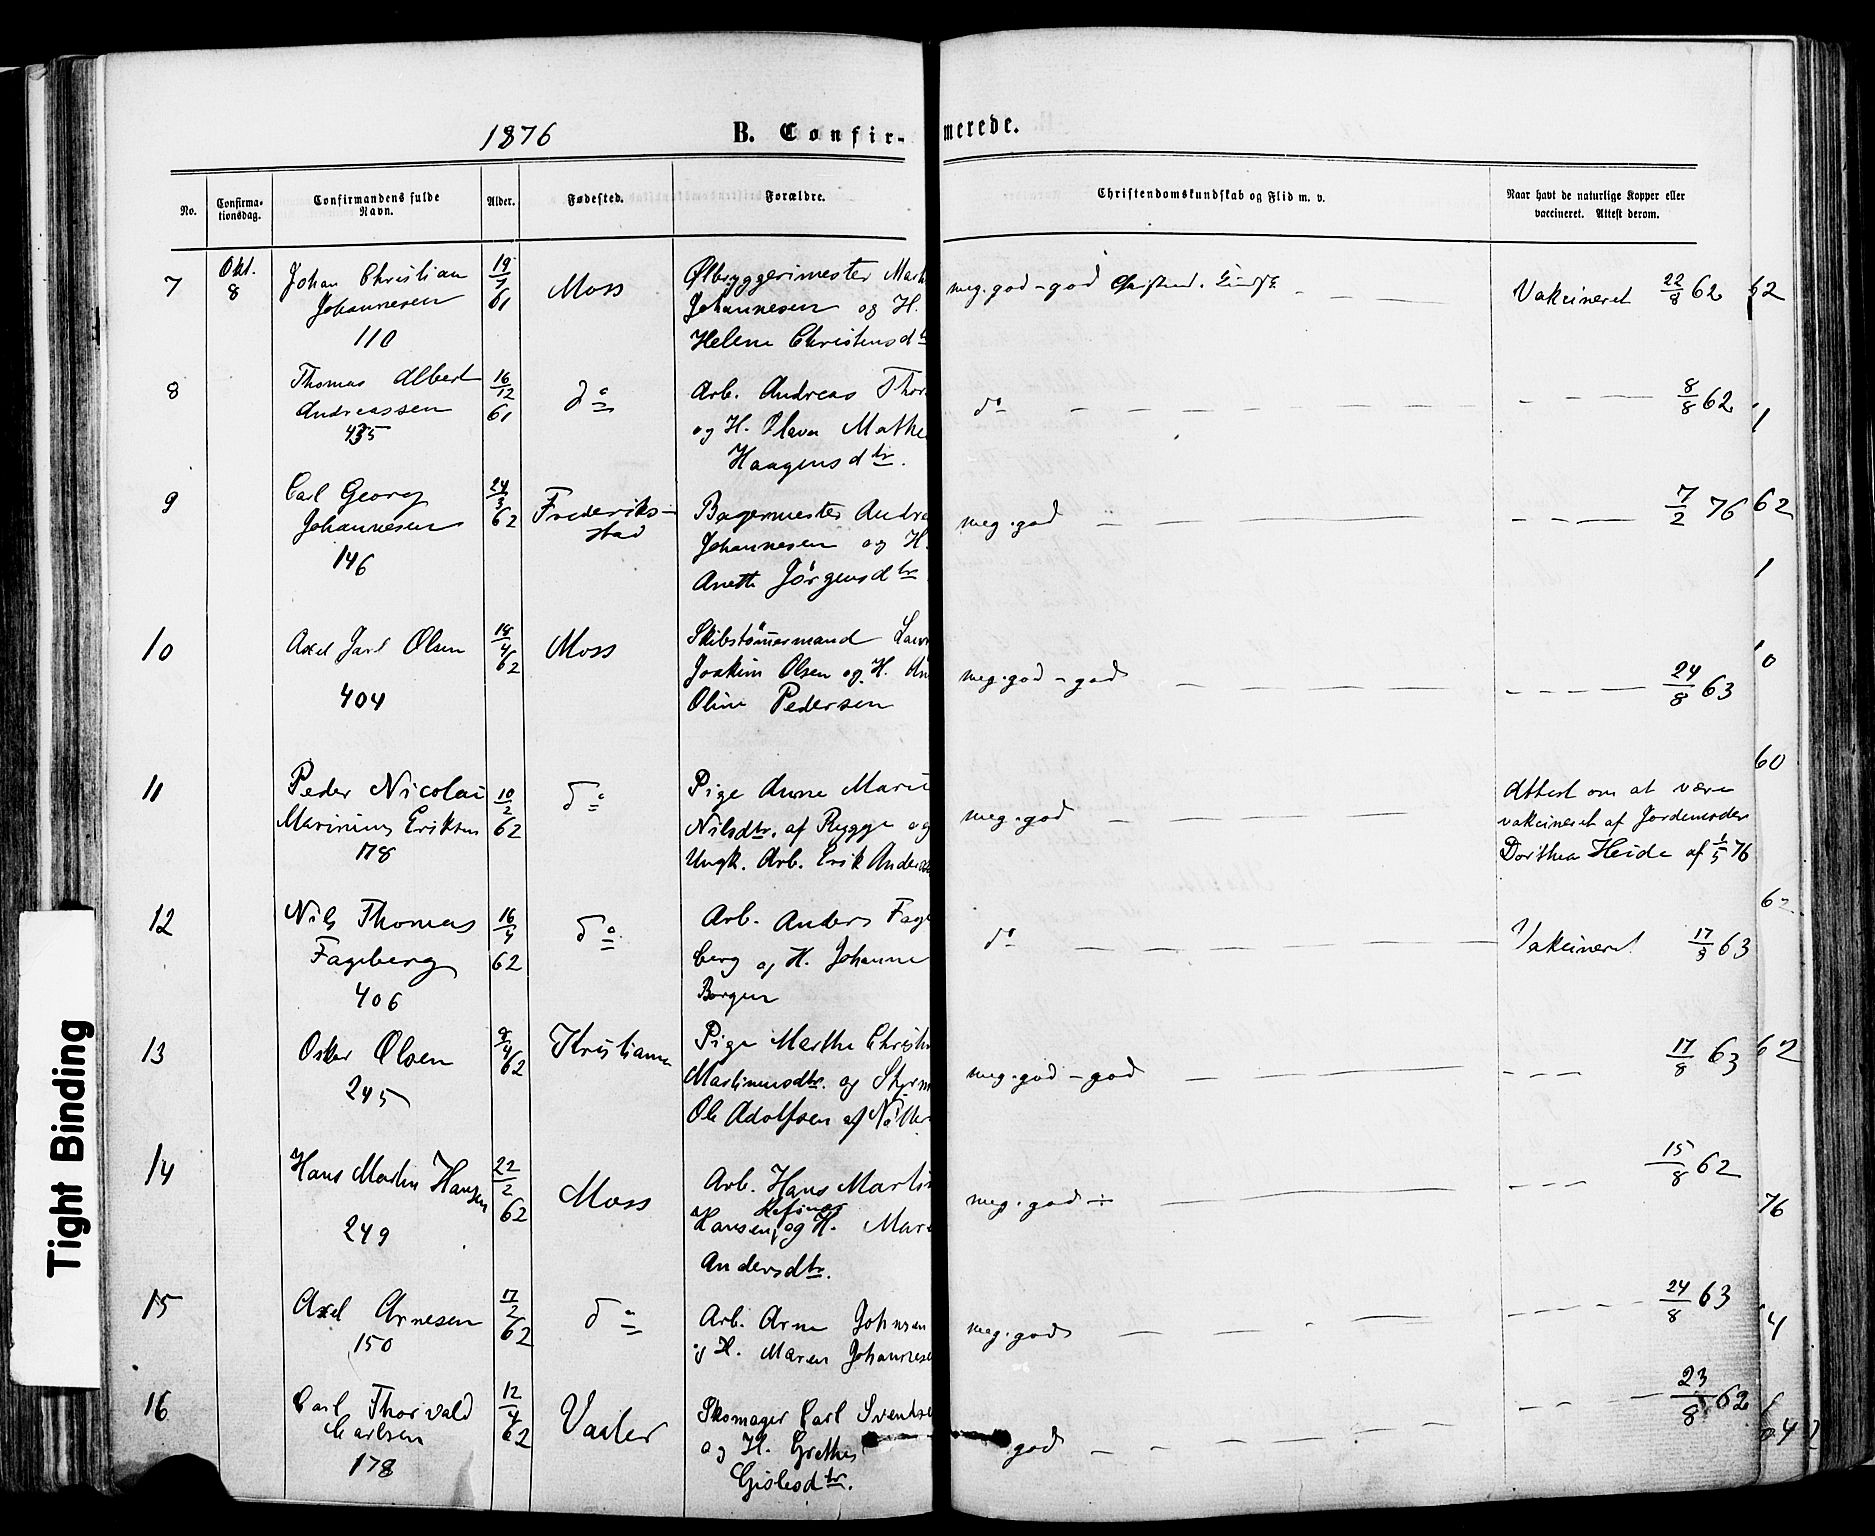 1876 B. Confirmerede.
No. Confirmationsdag. Confirmandens fulde Navn. Alder. Fødested. Forældre. Christendomskundskab og Flid m. v. Naar havt de naturlige Kopper eller vaccineret. Attest derom.
7 Okt. 8 Johan Christian 19/7 61 Moss Ølbryggerimester Mart meg.god-god Christend. Vakcineret 22/8 62 62
Johannesen Johannesen og H.
110 Helene Christensdtr
8 Thomas Albert 16/12 61 do Arb. Andreas Thor do 8/8 62
Andreassen og H. Olava Mathe 1
435 Haagensdtr.
9 Carl Georg 24/3 62 Frederiks- Bagermester Andre meg.god 7/2 76 62
Johannesen stad Johannesen og H.
146 Anette Jörgensdtr 1
10 Axel Jarl Olsen 18/4 62 Moss Skibstömmermand Laur meg.god-god 24/8 63 10
Joakim Olsen og H. An
404 Oline Pedersen
60
11 Peder Nicolai 10/2 62 do Pige Anne Marie meg.god Attest om at være
Marinius Eriksen Nilsdtr. af Rygge og vakcineret af Jordemoder
178 Ungk. Arb. Erik Anders Dorthea Heide af 1/5 76
62
12 Nils Thomas 16/4 62 do Arb. Anders Fage do Vakcineret 17/9 63
Fageberg berg og H. Johanne
406 Borgen
13 Oskar Olsen 9/4 62 Kristiania Pige Marthe Christi meg.god-god 17/8 63 62
245 Martinusdtr. og Styrm
Ole Adolfsen af Nötter
14 Hans Martin Hansen 22/2 62 Moss Arb. Hans Martin meg.god ÷ 15/8 62
249 Hansen, og H. Mare 76
Andersdtr.
15 Axel Arnesen 17/2 62 do Arb. Arne Johnsen meg.god 24/8 63
150 og H. Maren Johannese 4
16 Carl Thorvald 12/4 62 Vaaler Skomager Carl Svendse god 23/8 62
Carlsen og H. Grethe
178 Gislesdtr.
Tight Binding